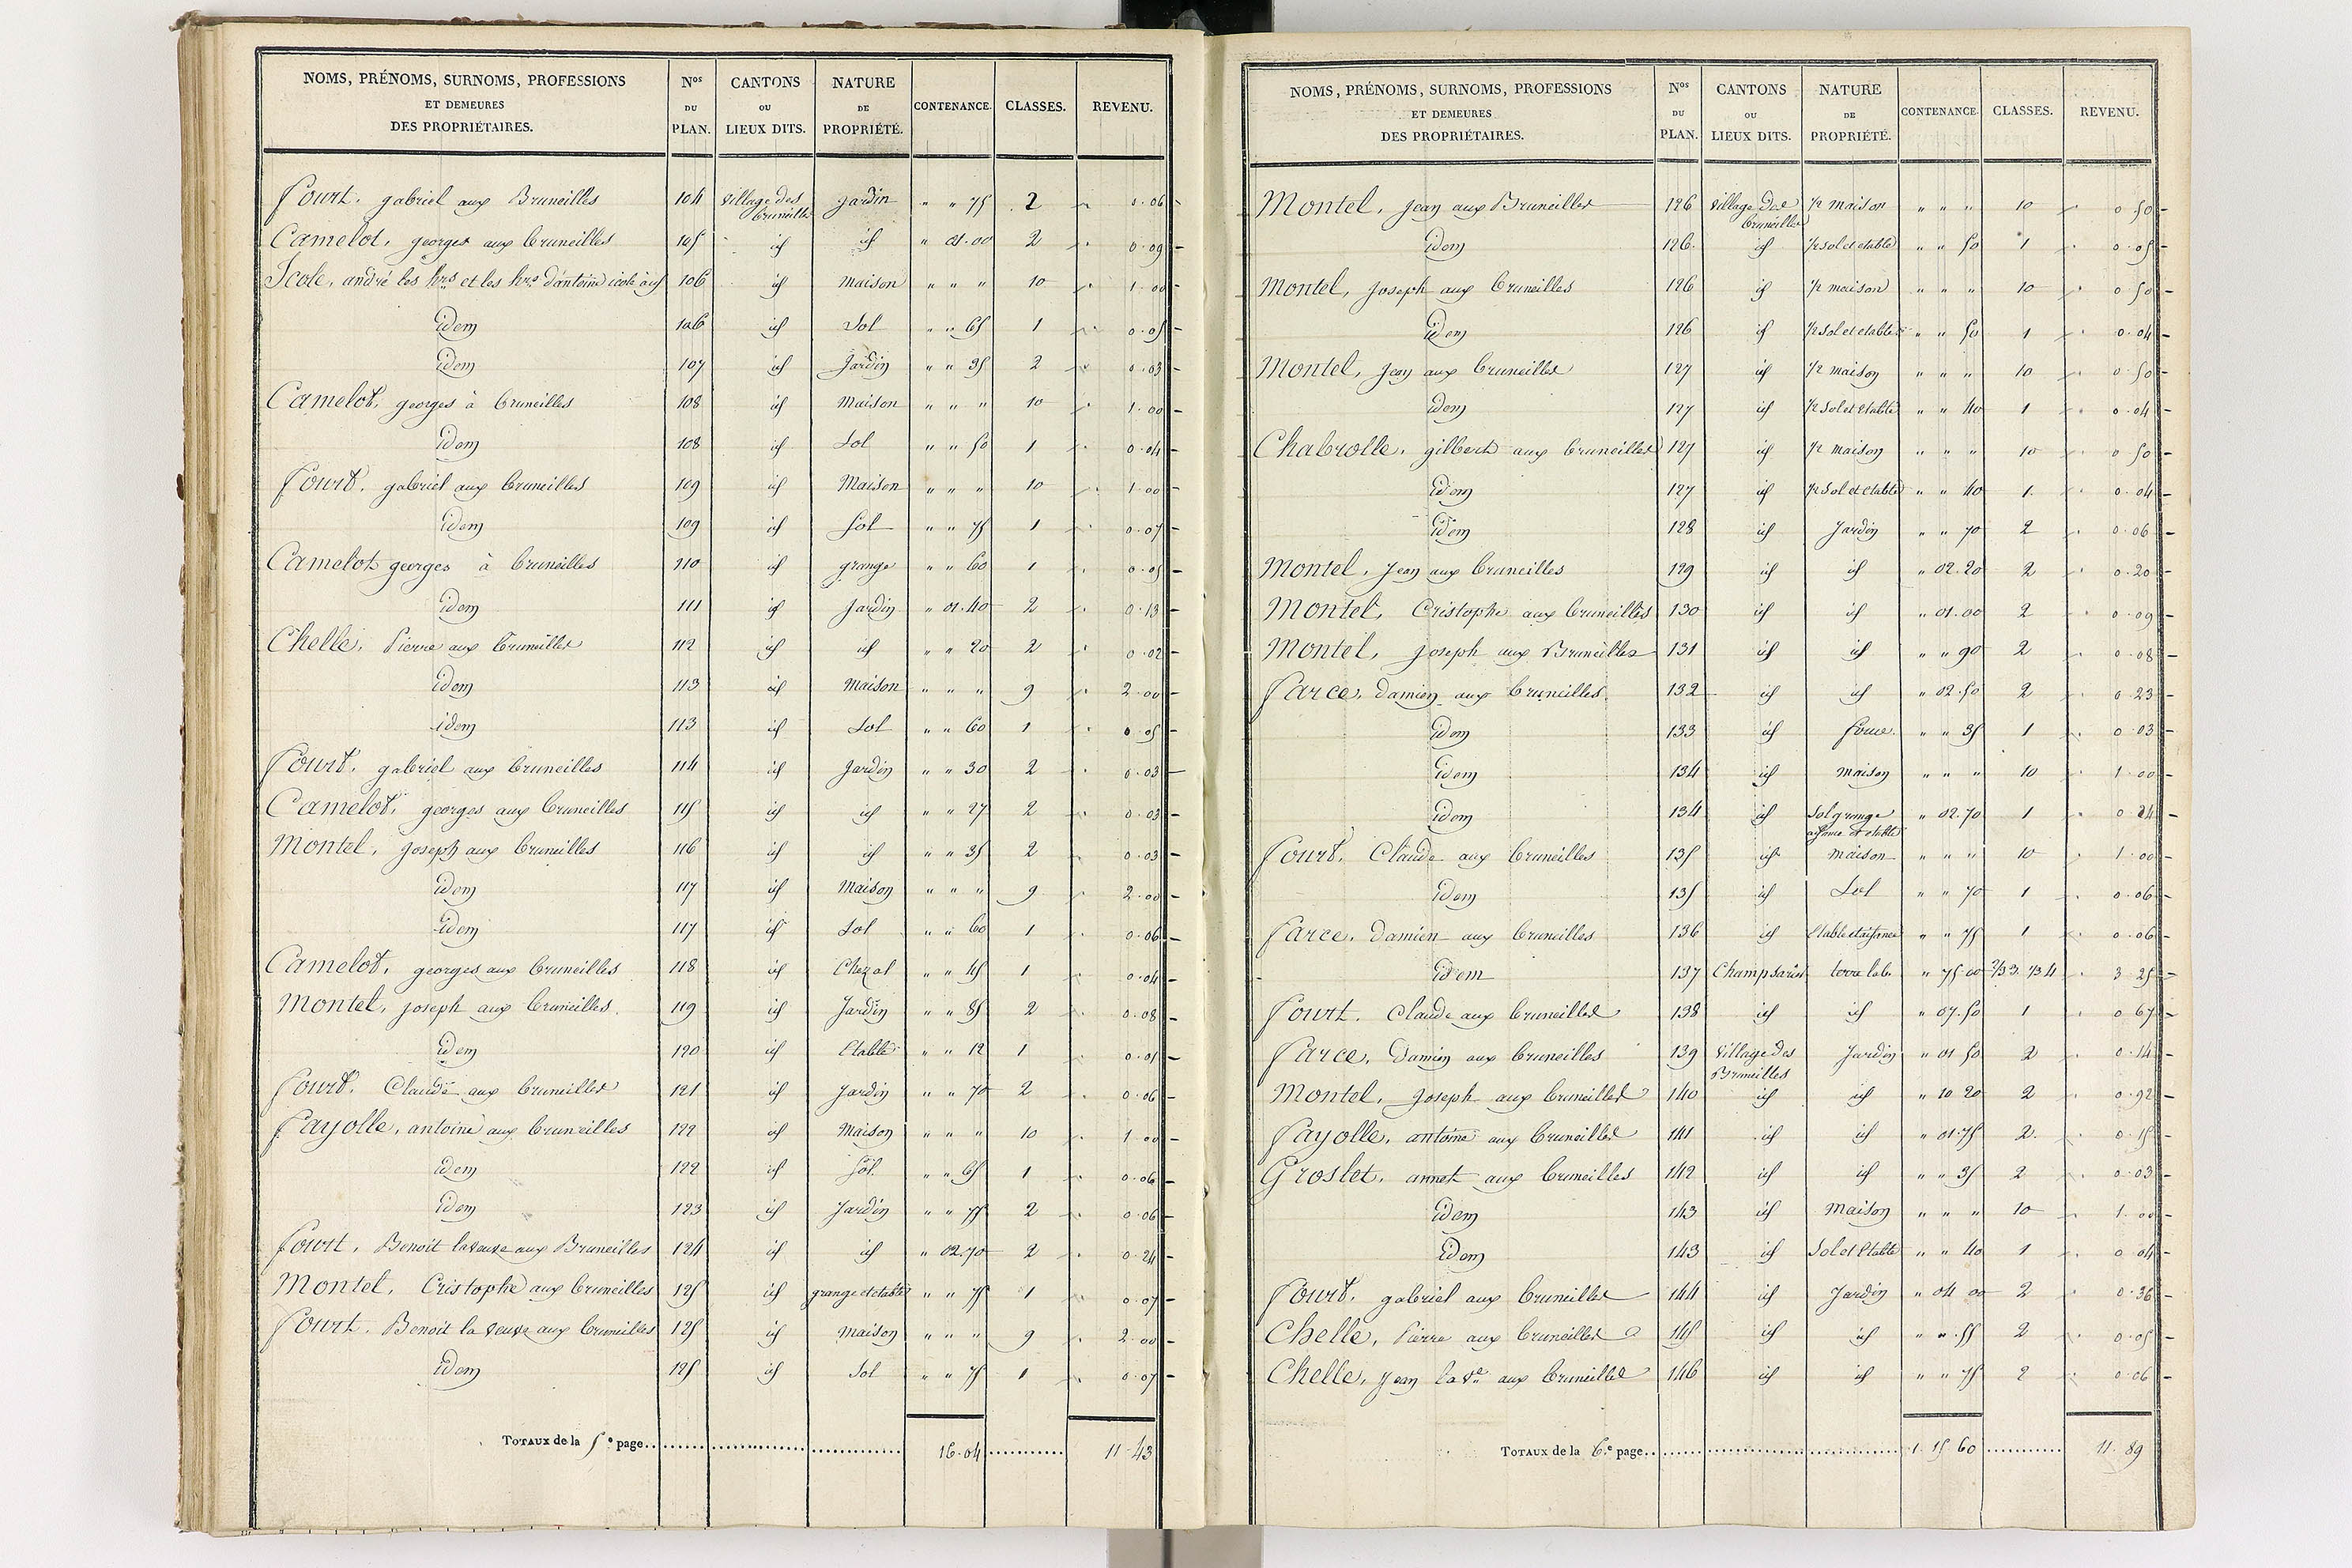 NOMS, PRÉNOMS, SURNOMS, PROFESSIONS ET DEMEURES DES PROPRIÉTAIRES. Nos DU PLAN. CANTONS OU LIEUX DITS. NATURE DE PROPRIÉTÉ. CONTENANCE. CLASSES. REVENU.
Fourt. gabriel aux Bruneilles 104 village des bruneilles jardin " " 75 2 0.06
Camelot, georges aux bruneilles 105 id id " 01.00 2 0.09
Icole, andré les hrs et les hrs d'antoine icole à id 106 id Maison " " " 10 1.00
idem 106 id Sol " " 65 1 0.05
idem 107 id Jardin " " 35 2 0.03
Camelot, georges à bruneilles 108 id Maison " " " 10 1.00
idem 108 id Sol " " 50 1 0.04
Fourt. gabriel aux bruneilles 109 id Maison " " " 10 1.00
idem 109 id Sol " " 75 1 0.07
Camelot georges à bruneilles 110 id grange " " 60 1 0.05
idem 111 id Jardin " 01.40 2 0.13
Chelle, Pierre aux bruneilles 112 id id " " 20 2 0.02
idem 113 id Maison " " " 9 2.00
idem 113 id Sol " " 60 1 0.05
Fourt. gabriel aux bruneilles 114 id Jardin " " 30 2 0.03
Camelot, georges aux bruneilles 115 id id " " 27 2 0.03
Montel, joseph aux bruneilles 116 id id " " 35 2 0.03
idem 117 id Maison " " " 9 2.00
idem 117 id Sol " " 60 1 0.06
Camelot, georges aux bruneilles 118 id Chezal " " 45 1 0.04
Montel, joseph aux bruneilles. 119 id Jardin " " 85 2 0.08
idem 120 id Etable " " 12 1 0.01
Fourt. Claude aux bruneilles 121 id Jardin " " 70 2 0.06
Fayolle, antoine aux bruneilles 122 id Maison " " " 10 1.00
idem 122 id Sol " " 65 1 0.06
idem 123 id Jardin " " 75 2 0.06
Fourt, Benoit la veuve aux Bruneilles 124 id id " 02.70 2 0.24
Montel, Cristophe aux bruneilles 125 id grange et etable " " 75 1 0.07
Fourt. Benoit la veuve aux bruneilles 125 id Maison " " " 9 2.00
idem 125 id Sol " " 75 1 0.07
TOTAUX de la 5e page 16.04 11.43
NOMS, PRÉNOMS, SURNOMS, PROFESSIONS ET DEMEURES DES PROPRIÉTAIRES. Nos DU PLAN. CANTONS OU LIEUX DITS. NATURE DE PROPRIÉTÉ. CONTENANCE. CLASSES. REVENU.
Montel, Jean aux Bruneilles 126 village des bruneilles 1/2 maison " " " 10 0 50
idem 126. id 1/2 sol et etable " " 50 1 0.05
Montel, Joseph aux bruneilles 126 id 1/2 maison " " " 10 0 50
idem 126 id 1/2 sol et etable " " 50 1 0.04
Montel, Jean aux bruneilles 127 id 1/2 maison " " " 10 0 50
idem 127 id 1/2 sol et etable " " 40 1 0.04
Chabrolle, gilbert aux bruneilles 127 id 1/2 maison " " " 10 0 50
idem 127 id 1/2 sol et etable " " 40 1. 0.04
idem 128 id Jardin " " 70 2 0.06
Montel, Jean aux bruneilles 129 id id " 02.20 2 0.20
Montel, Cristophe aux bruneilles 130 id id " 01.00 2 0.09
Montel, joseph aux Bruneilles 131 id id " " 90 2 0.08
Farce, Damien aux bruneilles. 132 id id " 02.50 2 0 23
idem 133 id " " 35 1 0 03
idem 134 id maison " " " 10 1.00
idem 134 id Sol grange et etable " 02.70 1 0 24
Fourt, Claude aux bruneilles 135 id maison " " " 10 1.00
idem 135 id Sol " " 70 1 0.06
Farce, Damien aux bruneilles 136 id " " 75 1 0.06
idem 137 terre lab. " 75 00 2/3 3 1/3 4 3 25
Fourt. Claude aux bruneilles 138 id id " 07.50 1 0 67
Farce, Damien aux bruneilles 139 village des Bruneilles Jardin " 01 50 2 0.14
Montel, Joseph aux bruneilles 140 id id " 10 20 2 0.92
Fayolle, antoine aux bruneilles 141 id id " 01.75 2. 0.15
Groslet, annet aux bruneilles 142 id id " " 35 2 0.03
idem 143 id Maison " " " 10 1.00
idem 143 id Sol et Etable " " 40 1 0 04
Fourt, gabriel aux bruneilles 144 id Jardin " 04 00 2 0.36
Chelle, Pierre aux bruneilles 145 id id " " 55 2 0.05
Chelle, Jean la ve aux bruneilles 146 id id " " 75 2 0.06
TOTAUX de la 6.e page 1. 15 60 11. 89